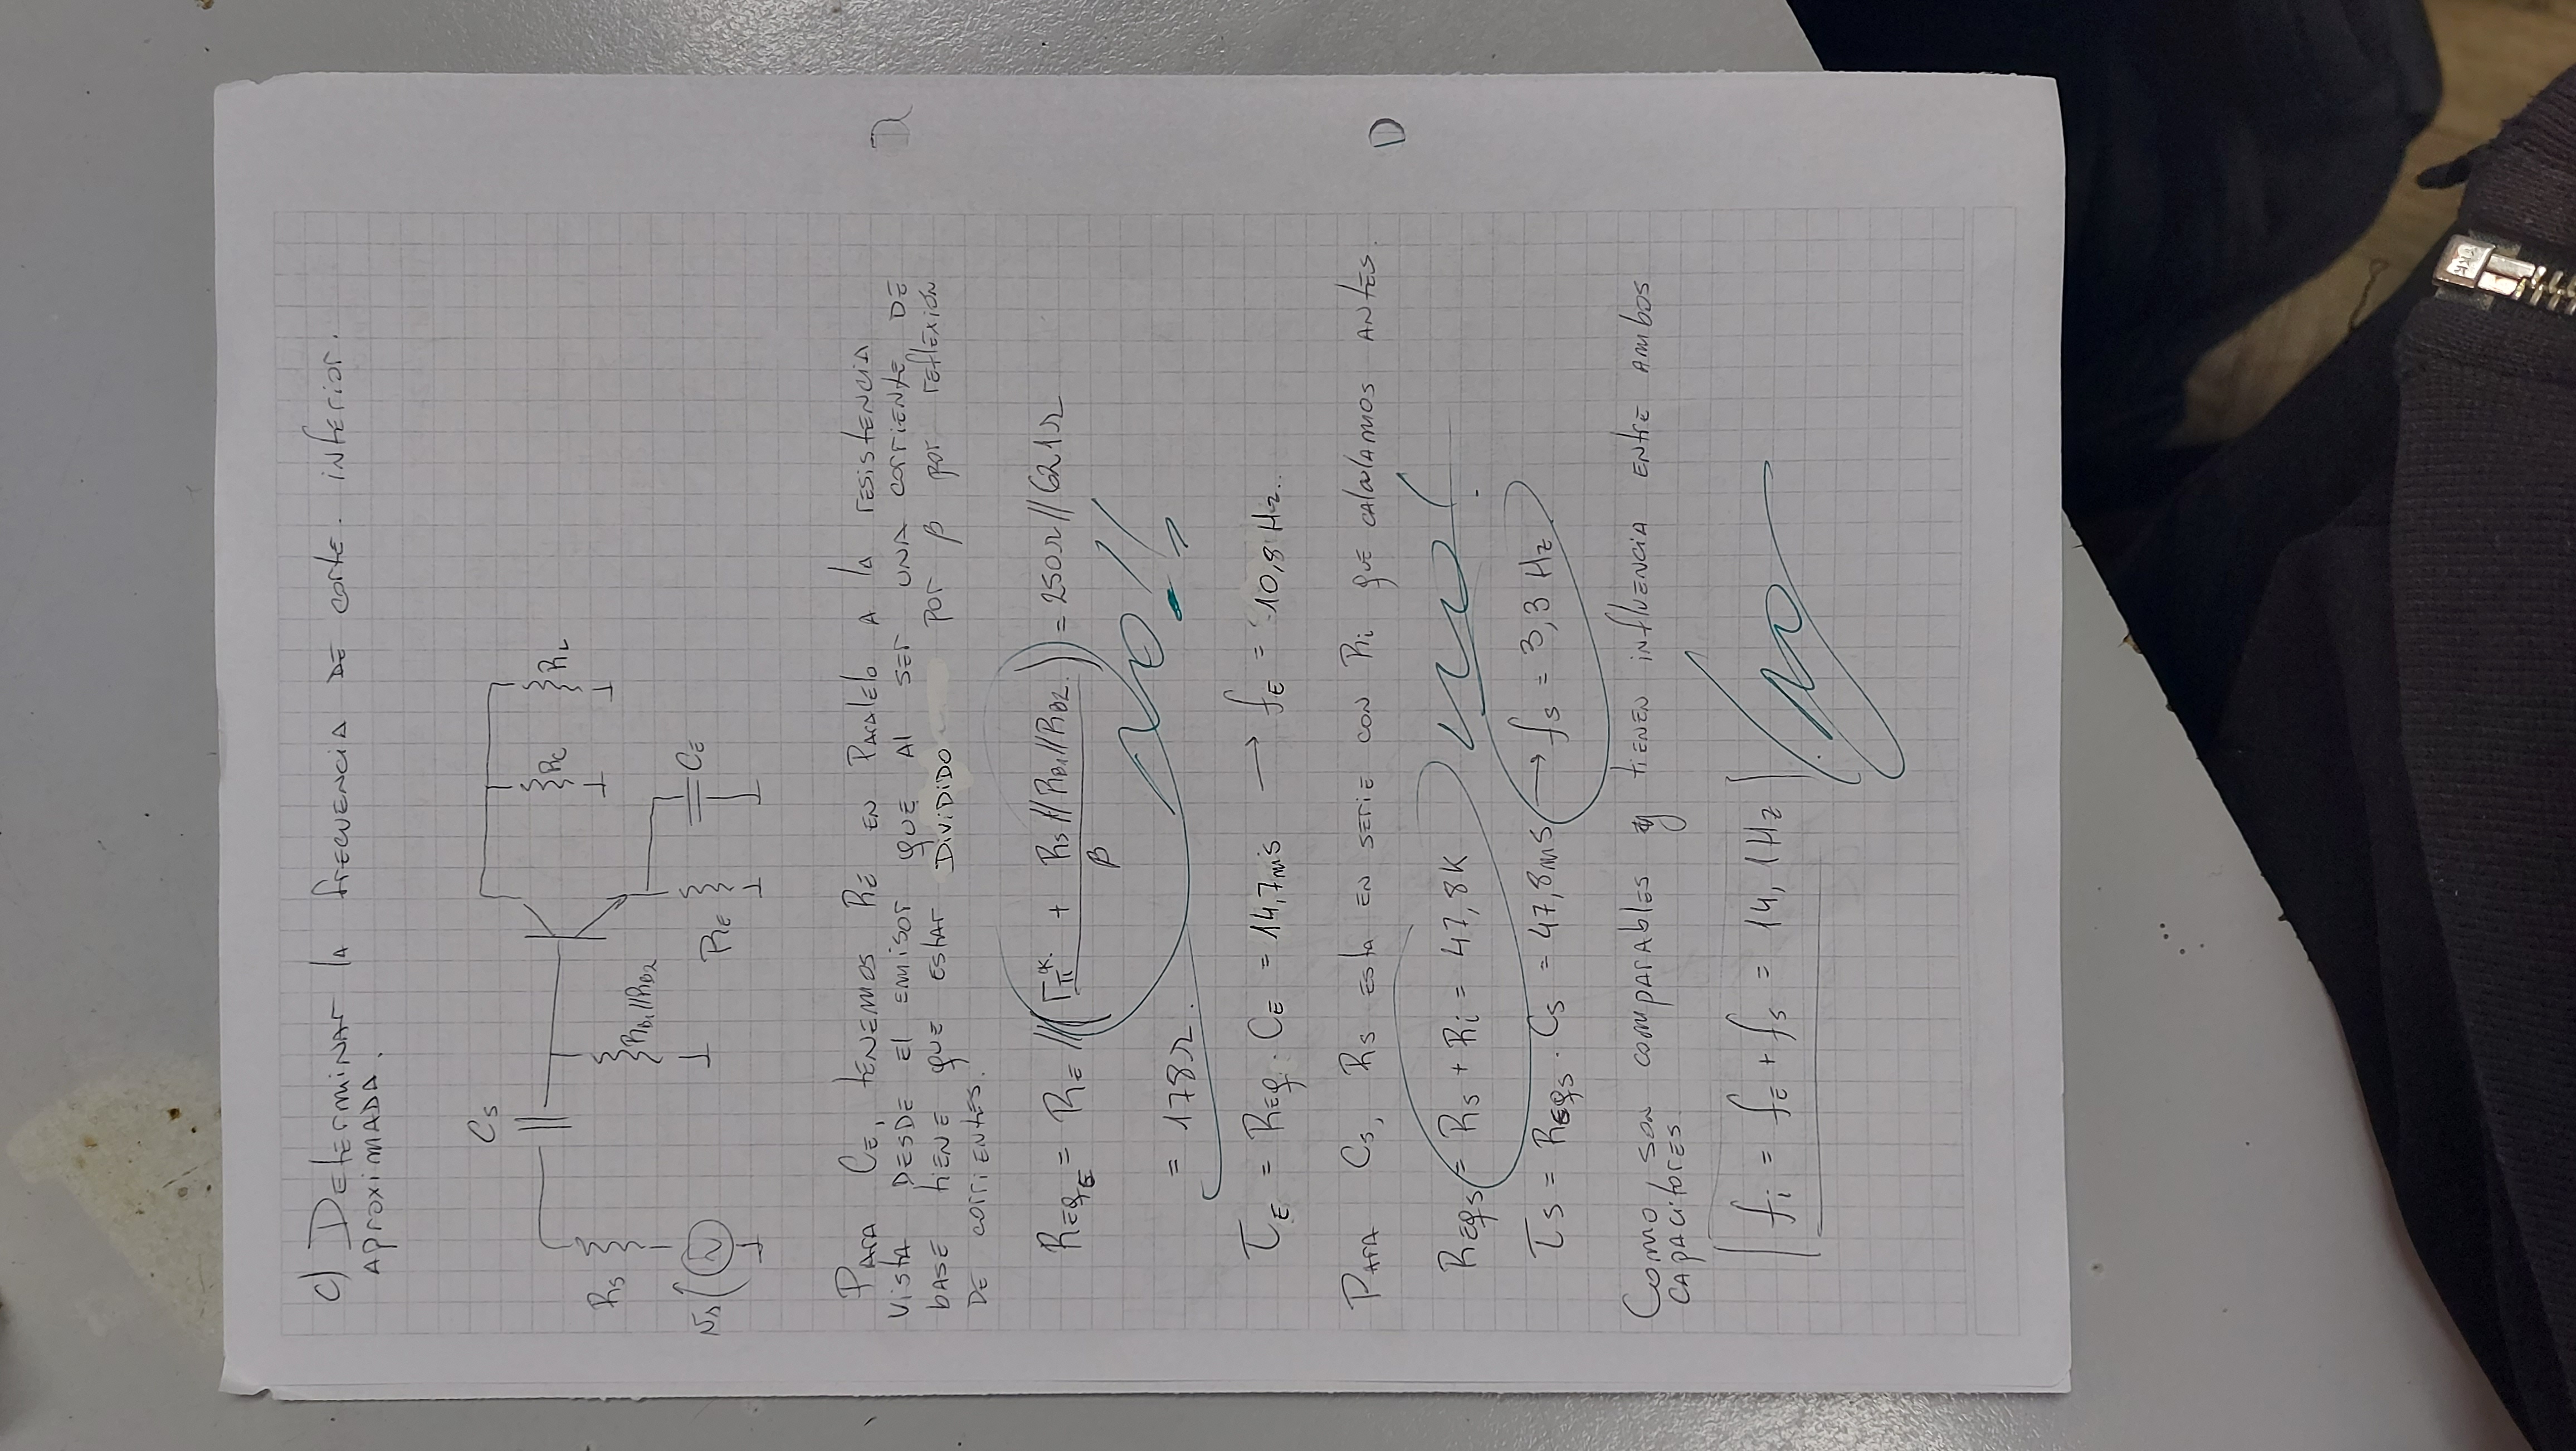 c) Determinar la frecuencia de corte. inferior.
aproximada.
Cs
Rs
RB1//RB2
RC
RL
vs
RE
CE
Para CE, tenemos RE en paralelo a la resistencia
vista desde el emisor que al ser una corriente de
base tiene que estar dividido por β por reflexión
de corrientes.
REqE = RE // ( rπ + Rs//RB1//RB2 / β ) = 250Ω//621Ω
NO!!
= 178Ω.
τE = REq . CE = 14,7ms → fE = 10,8 Hz..
Para Cs, Rs esta en serie con Ri que calculamos antes.
D
REqs = Rs + Ri = 47,8K
no!
τs = REqs . Cs = 47,8ms → fs = 3,3 Hz.
Como, son comparables y tienen influencia entre ambos
capacitores.
fi = fE + fs = 14,1Hz
no